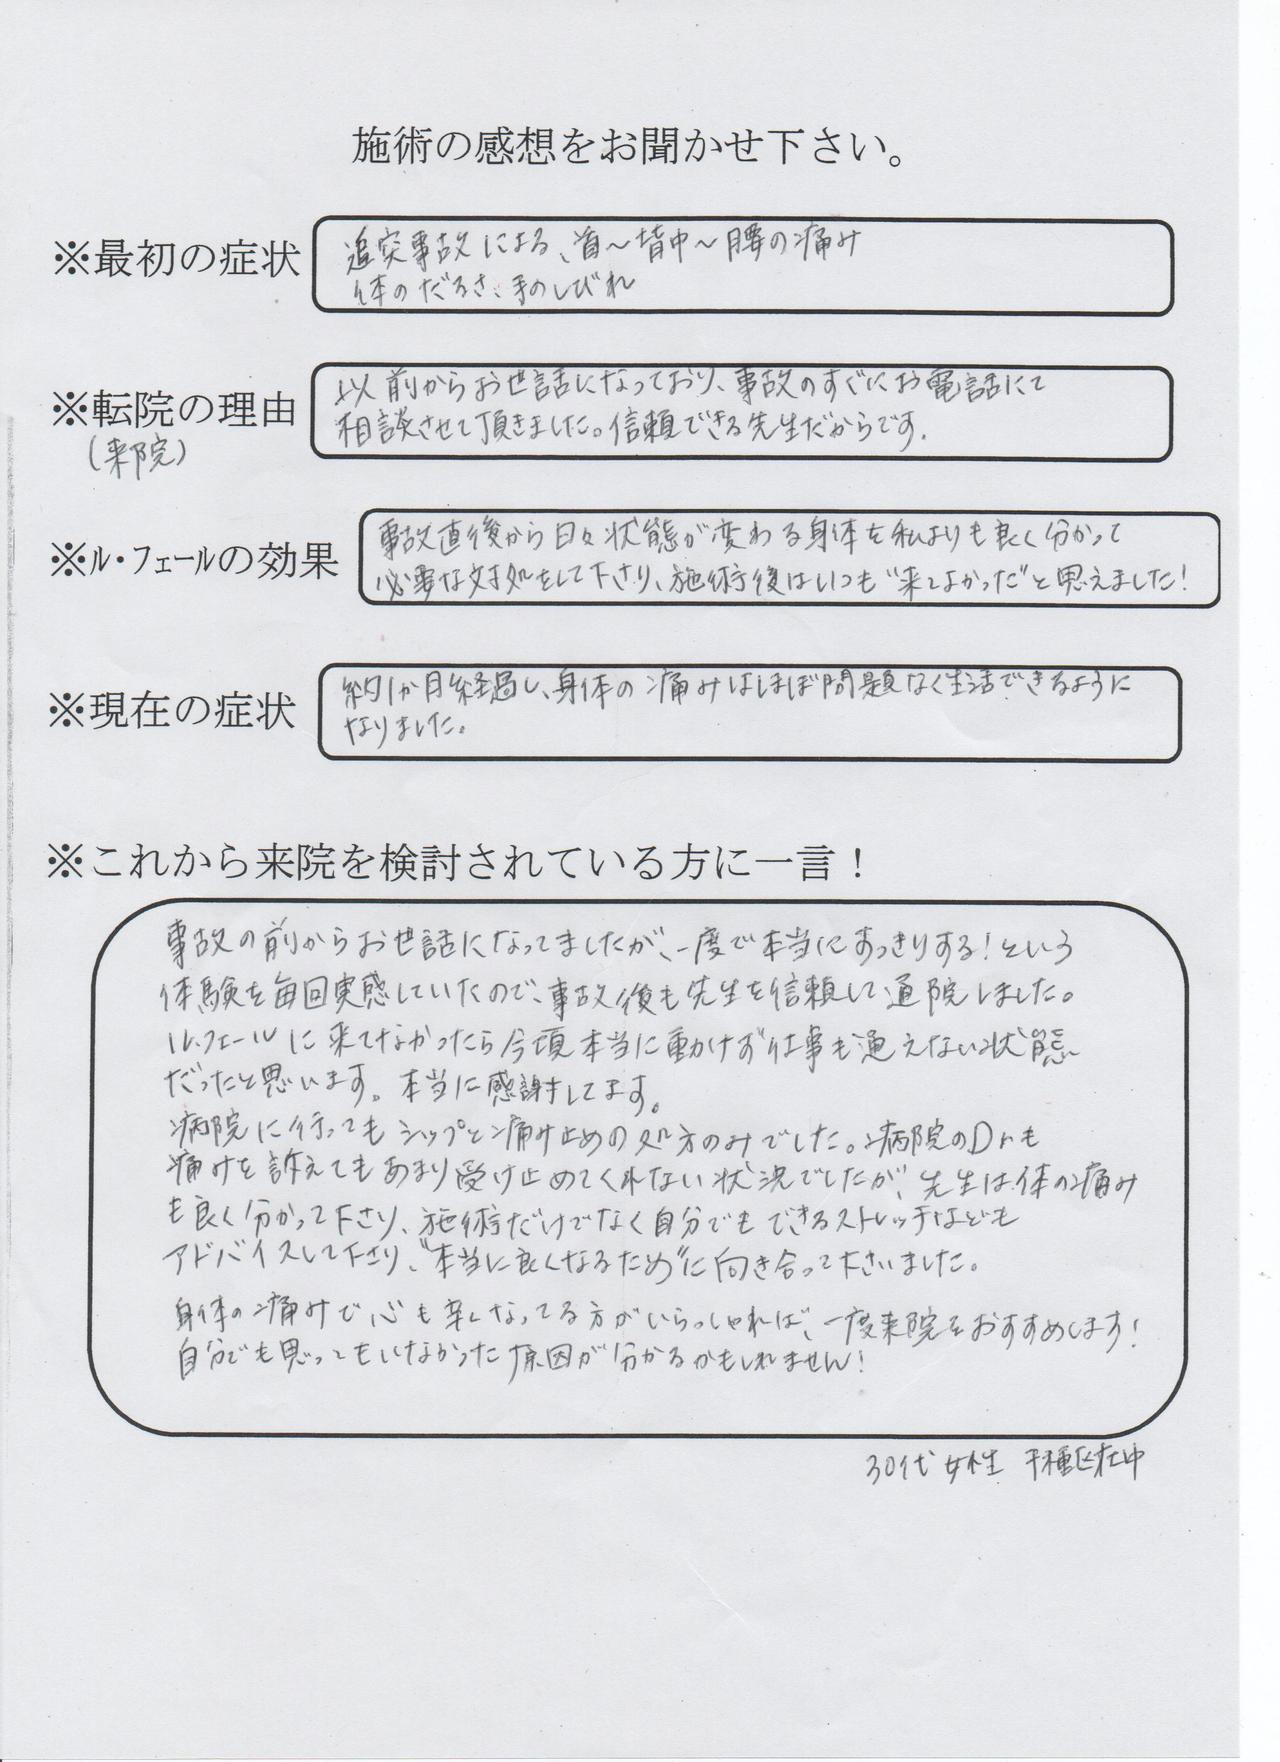 施術の感想をお聞かせ下さい。
※最初の症状
追突事故による、首～背中～腰の痛み
体のだるさ、手のしびれ
※転院の理由
(来院)
以前からお世話になっており、事故のすぐにお電話にて
相談させて頂きました。信頼できる先生だからです.
※ル・フェールの効果
事故直後から日々状態が変わる身体を私よりも良く分かって
必要な対処をして下さり、施術後はいつも“来てよかった”と思えました!
※現在の症状
約1か月経過し、身体の痛みはほぼ問題なく生活できるように
なりました。
※これから来院を検討されている方に一言！
事故の前からお世話になってましたが、一度で本当にすっきりする!という
体験を毎回実感していたので、事故後も先生を信頼して通院しました。
ル・フェールに来てなかったら今頃本当に動けず仕事も通えない状態
だったと思います。本当に感謝してます。
病院に行ってもシップと痛み止めの処方のみでした。病院のDrも
痛みを訴えてもあまり受け止めてくれない状況でしたが、先生は体の痛み
も良く分かって下さり、施術だけでなく自分でもできるストレッチなども
アドバイスして下さり、“本当に良くなるため”に向き合って下さいました。
身体の痛みで心も辛くなってる方がいらっしゃれば、一度来院をおすすめします!
自分でも思ってもいなかった原因が分かるかもしれません!
30代 女性 千種区在中